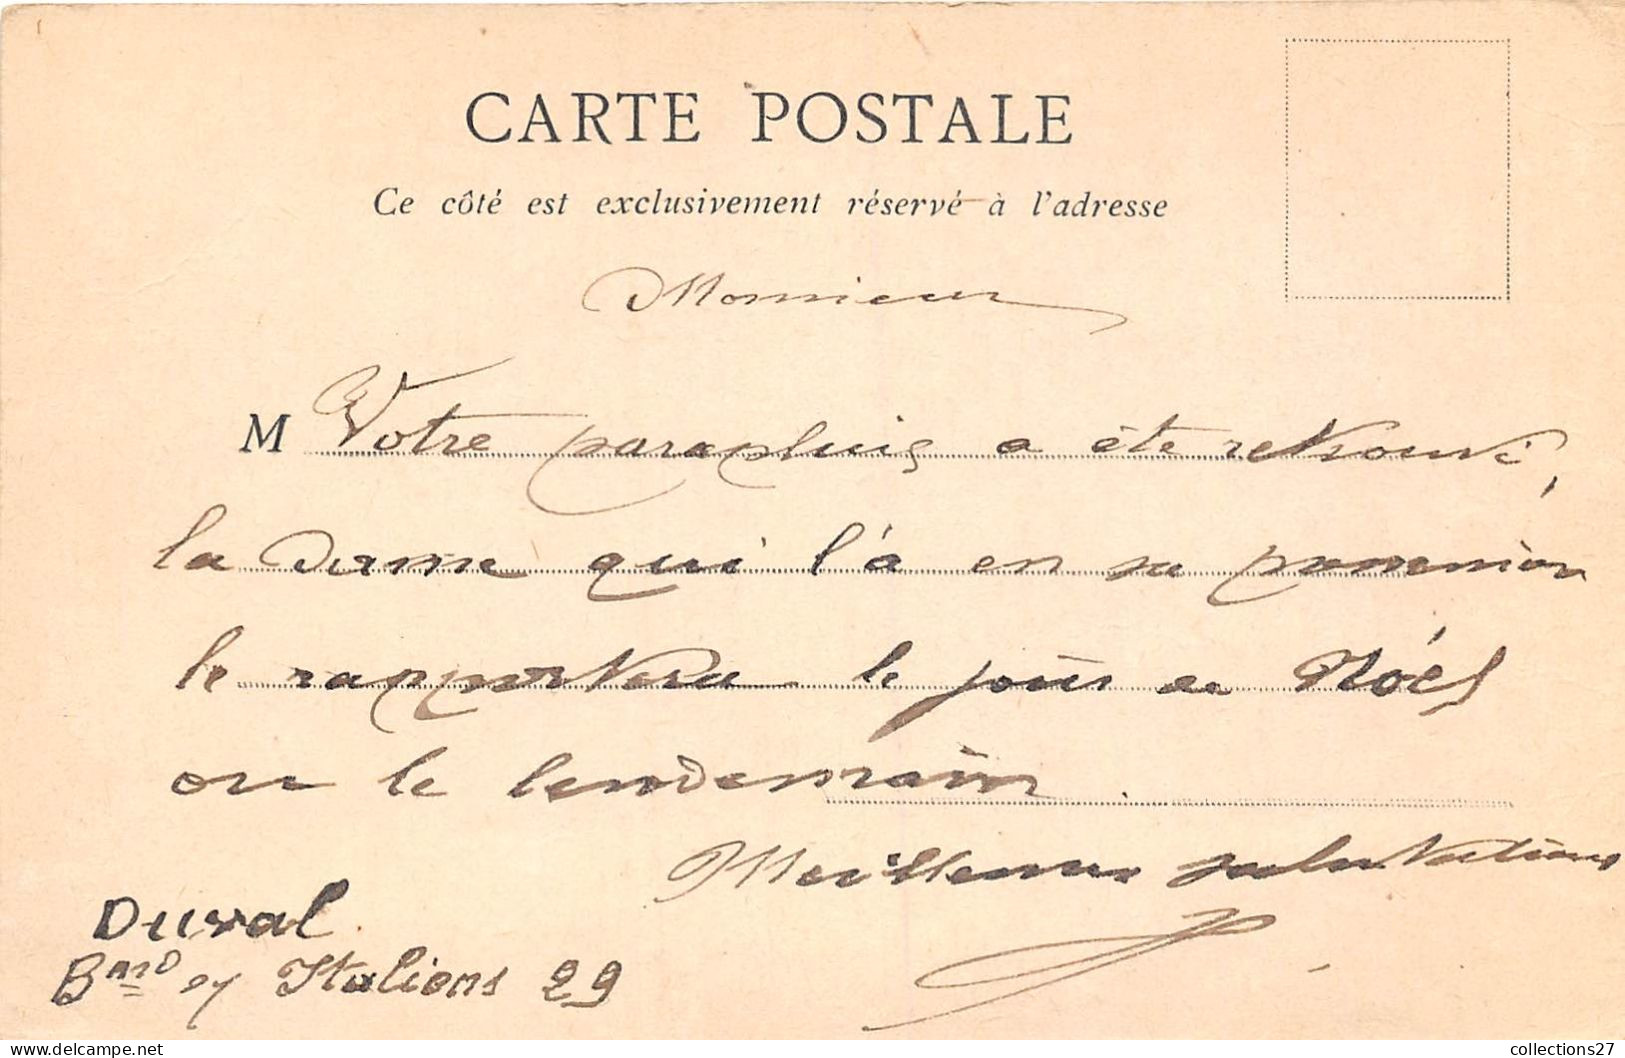 CARTE POSTALE
Ce côté est exclusivement réservé à l'adresse
Monsieur
M Votre parapluis a été retrouvé,
la Dame qui l'à en sa possession
le rapportera le jour de Nöel
ou le lendemain.
Meilleures salutations
Duval
B^ard des Italiens 29
collections27